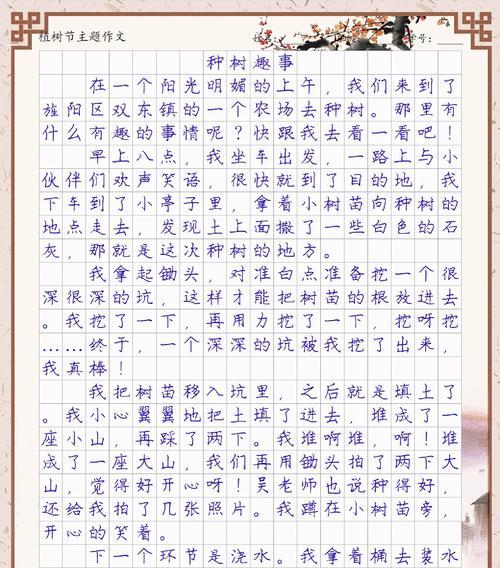 植树节主题作文
姓名:
学号:
种树趣事
在一个阳光明媚的上午，我们来到了
旌阳区双东镇的一个农场去种树。那里有
什么有趣的事情呢？快跟我去看一看吧！
早上八点，我坐车出发，一路上与小
伙伴们欢声笑语，很快就到了目的地，我
下车到了小亭子里，拿着小树苗向种树的
地点走去，发现土上面撒了一些白色的石
灰，那就是这次种树的地方。
我拿起锄头，对准白点准备挖一个很
深很深的坑，这样才能把树苗的根放进去
。我挖了一下，再用力挖了一下，挖呀挖
……终于，一个深深的坑被我挖了出来，
我真棒！
我把树苗移入坑里，之后就是填土了
。我小心翼翼地把土填了进去，堆成了一
座小山，再踩了两下。我堆啊堆，啊！堆
成了一座大山，我们再用锄头拍了两下大
山，觉得好开心呀！吴老师也说种得好，
还给我拍了几张照片。我蹲在小树苗旁，
开心的笑着。
下一个环节是浇水。我拿着桶去装水